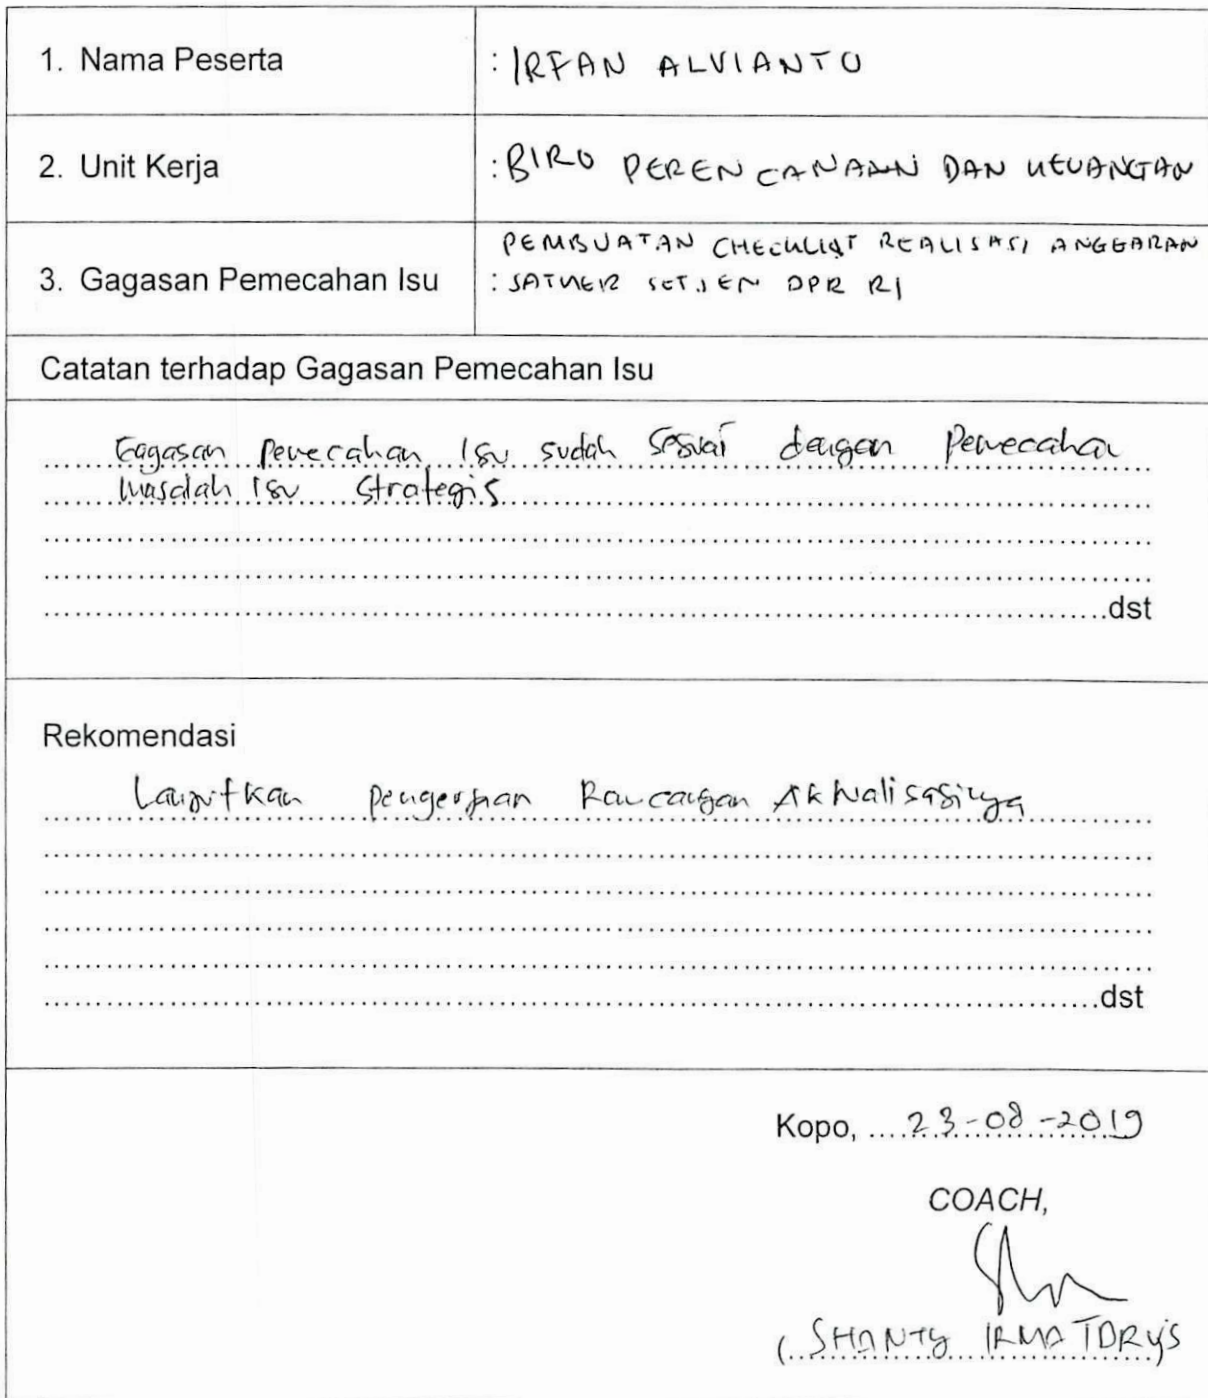 1. Nama Peserta : IRFAN ALVIANTO
2. Unit Kerja : BIRO PERENCANAAN DAN KEUANGAN
PEMBUATAN CHECKLIST REALISASI ANGGARAN
3. Gagasan Pemecahan Isu : SATKER SETJEN DPR RI
Catatan terhadap Gagasan Pemecahan Isu
Gagasan pemecahan Isu sudah sesuai dengan Pemecahan
masalah isu strategis
dst
Rekomendasi
Lanjutkan pengerjaan Rancangan Aktualisasinya
dst
Kopo, 23-08-2019
COACH,
(SHANTY IRMA